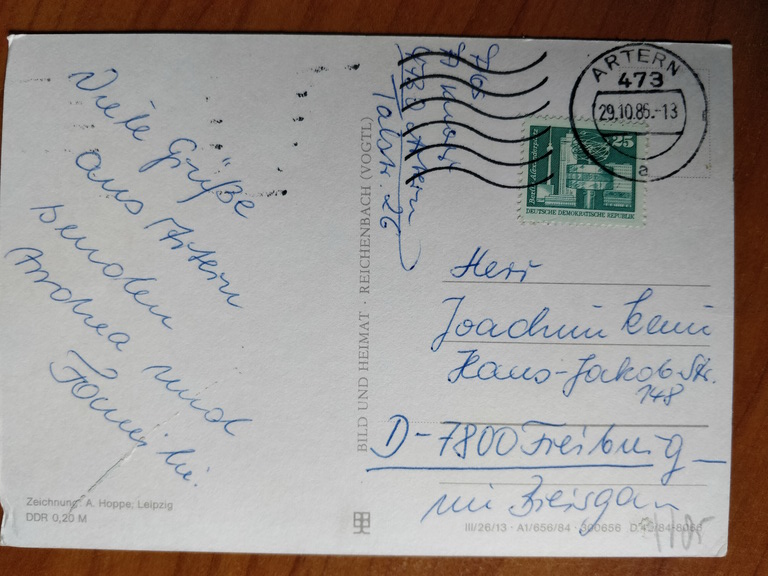 Viele Grüße
aus Artern
senden
Andrea und
Familie.
Zeichnung: A. Hoppe, Leipzig
DDR 0,20 M
BILD UND HEIMAT · REICHENBACH (VOGTL)
4730 Artern
Talstr. 26
ARTERN
473
29.10.85.-13
a
25
Berlin, Alexanderplatz
DEUTSCHE DEMOKRATISCHE REPUBLIK
Herr
Joachim
Hans-Jakob-Str.
148
D-7800 Freiburg
im Breisgau
III/26/13 · A1/656/84 · 300656